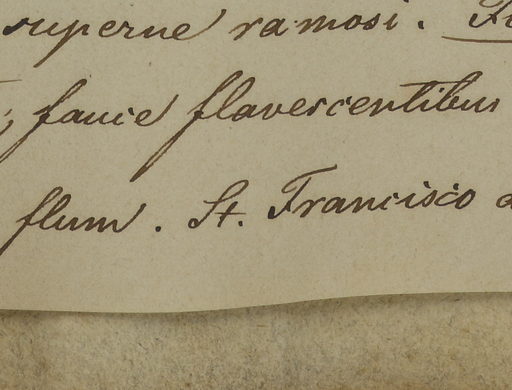 superne ramosi.
fauce flavescentibus
flum. St. Francisco